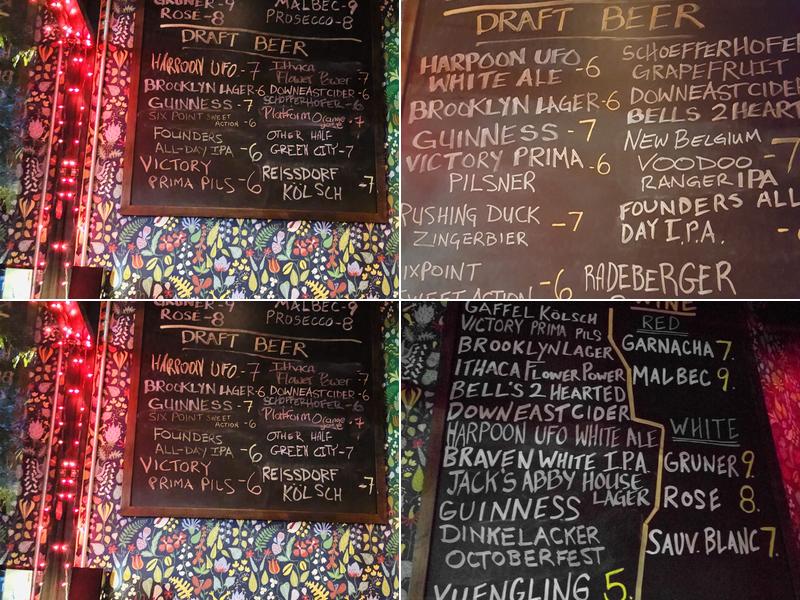 GRUNER-9
MALBEC-9
ROSE-8
PROSECCO-8
DRAFT BEER
HARPOON UFO-7
BROOKLYN LAGER-6
GUINNESS-7
SIX POINT SWEET
ACTION-6
FOUNDERS
ALL-DAY IPA-6
VICTORY
PRIMA PILS-6
Ithaca
Flower Power-7
DOWNEAST CIDER-6
SCHOFFERHOFER-6
Platform Orange
-7
OTHER HALF
GREEN CITY-7
REISSDORF
KÖLSCH-7
DRAFT BEER
HARPOON UFO
WHITE ALE-6
BROOKLYN LAGER-6
GUINNESS-7
VICTORY PRIMA-6
PILSNER
PUSHING DUCK-7
ZINGERBIER
IXPOINT
WEET ACTION-6
SCHOEFFERHOFE
GRAPEFRUIT
DOWNEAST CIDER
BELLS 2 HEART
NEW BELGIUM
VOODOO-7
RANGER IPA
FOUNDERS ALL
DAY I.P.A.
RADEBERGER
GRUNER-9
MALBEC-9
ROSE-8
PROSECCO-8
DRAFT BEER
HARPOON UFO-7
BROOKLYN LAGER-6
GUINNESS-7
SIX POINT SWEET
ACTION-6
FOUNDERS
ALL-DAY IPA-6
VICTORY
PRIMA PILS-6
Ithaca
Flower Power-7
DOWNEAST CIDER-6
SCHOFFERHOFER-6
Platform Orange
-7
OTHER HALF
GREEN CITY-7
REISSDORF
KÖLSCH-7
GAFFEL KÖLSCH
VICTORY PRIMA PILS
BROOKLYN LAGER
ITHACA FLOWER POWER
BELL'S 2 HEARTED
DOWNEAST CIDER
HARPOON UFO WHITE ALE
BRAVEN WHITE I.P.A.
JACK'S ABBY HOUSE
LAGER
GUINNESS
DINKELACKER
OCTOBERFEST
YUENGLING 5.
WINE
RED
GARNACHA 7.
MALBEC 9
WHITE
GRUNER 9.
ROSE 8.
SAUV. BLANC 7.